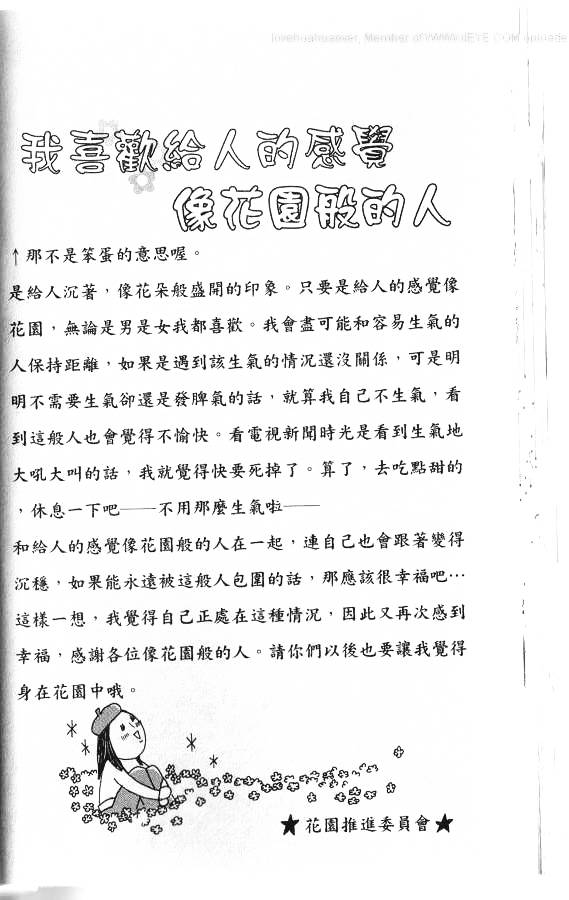 lovehuahuaever, Member of WWW.IIEYE.COM uploade
我喜歡給人的感覺
像花園般的人
↑那不是笨蛋的意思喔。
是給人沉著，像花朵般盛開的印象。只要是給人的感覺像
花園，無論是男是女我都喜歡。我會盡可能和容易生氣的
人保持距離，如果是遇到該生氣的情況還沒關係，可是明
明不需要生氣卻還是發脾氣的話，就算我自己不生氣，看
到這般人也會覺得不愉快。看電視新聞時光是看到生氣地
大吼大叫的話，我就覺得快要死掉了。算了，去吃點甜的
，休息一下吧——不用那麼生氣啦——
和給人的感覺像花園般的人在一起，連自己也會跟著變得
沉穩，如果能永遠被這般人包圍的話，那應該很幸福吧…
這樣一想，我覺得自己正處在這種情況，因此又再次感到
幸福，感謝各位像花園般的人。請你們以後也要讓我覺得
身在花園中哦。
★花園推進委員會★